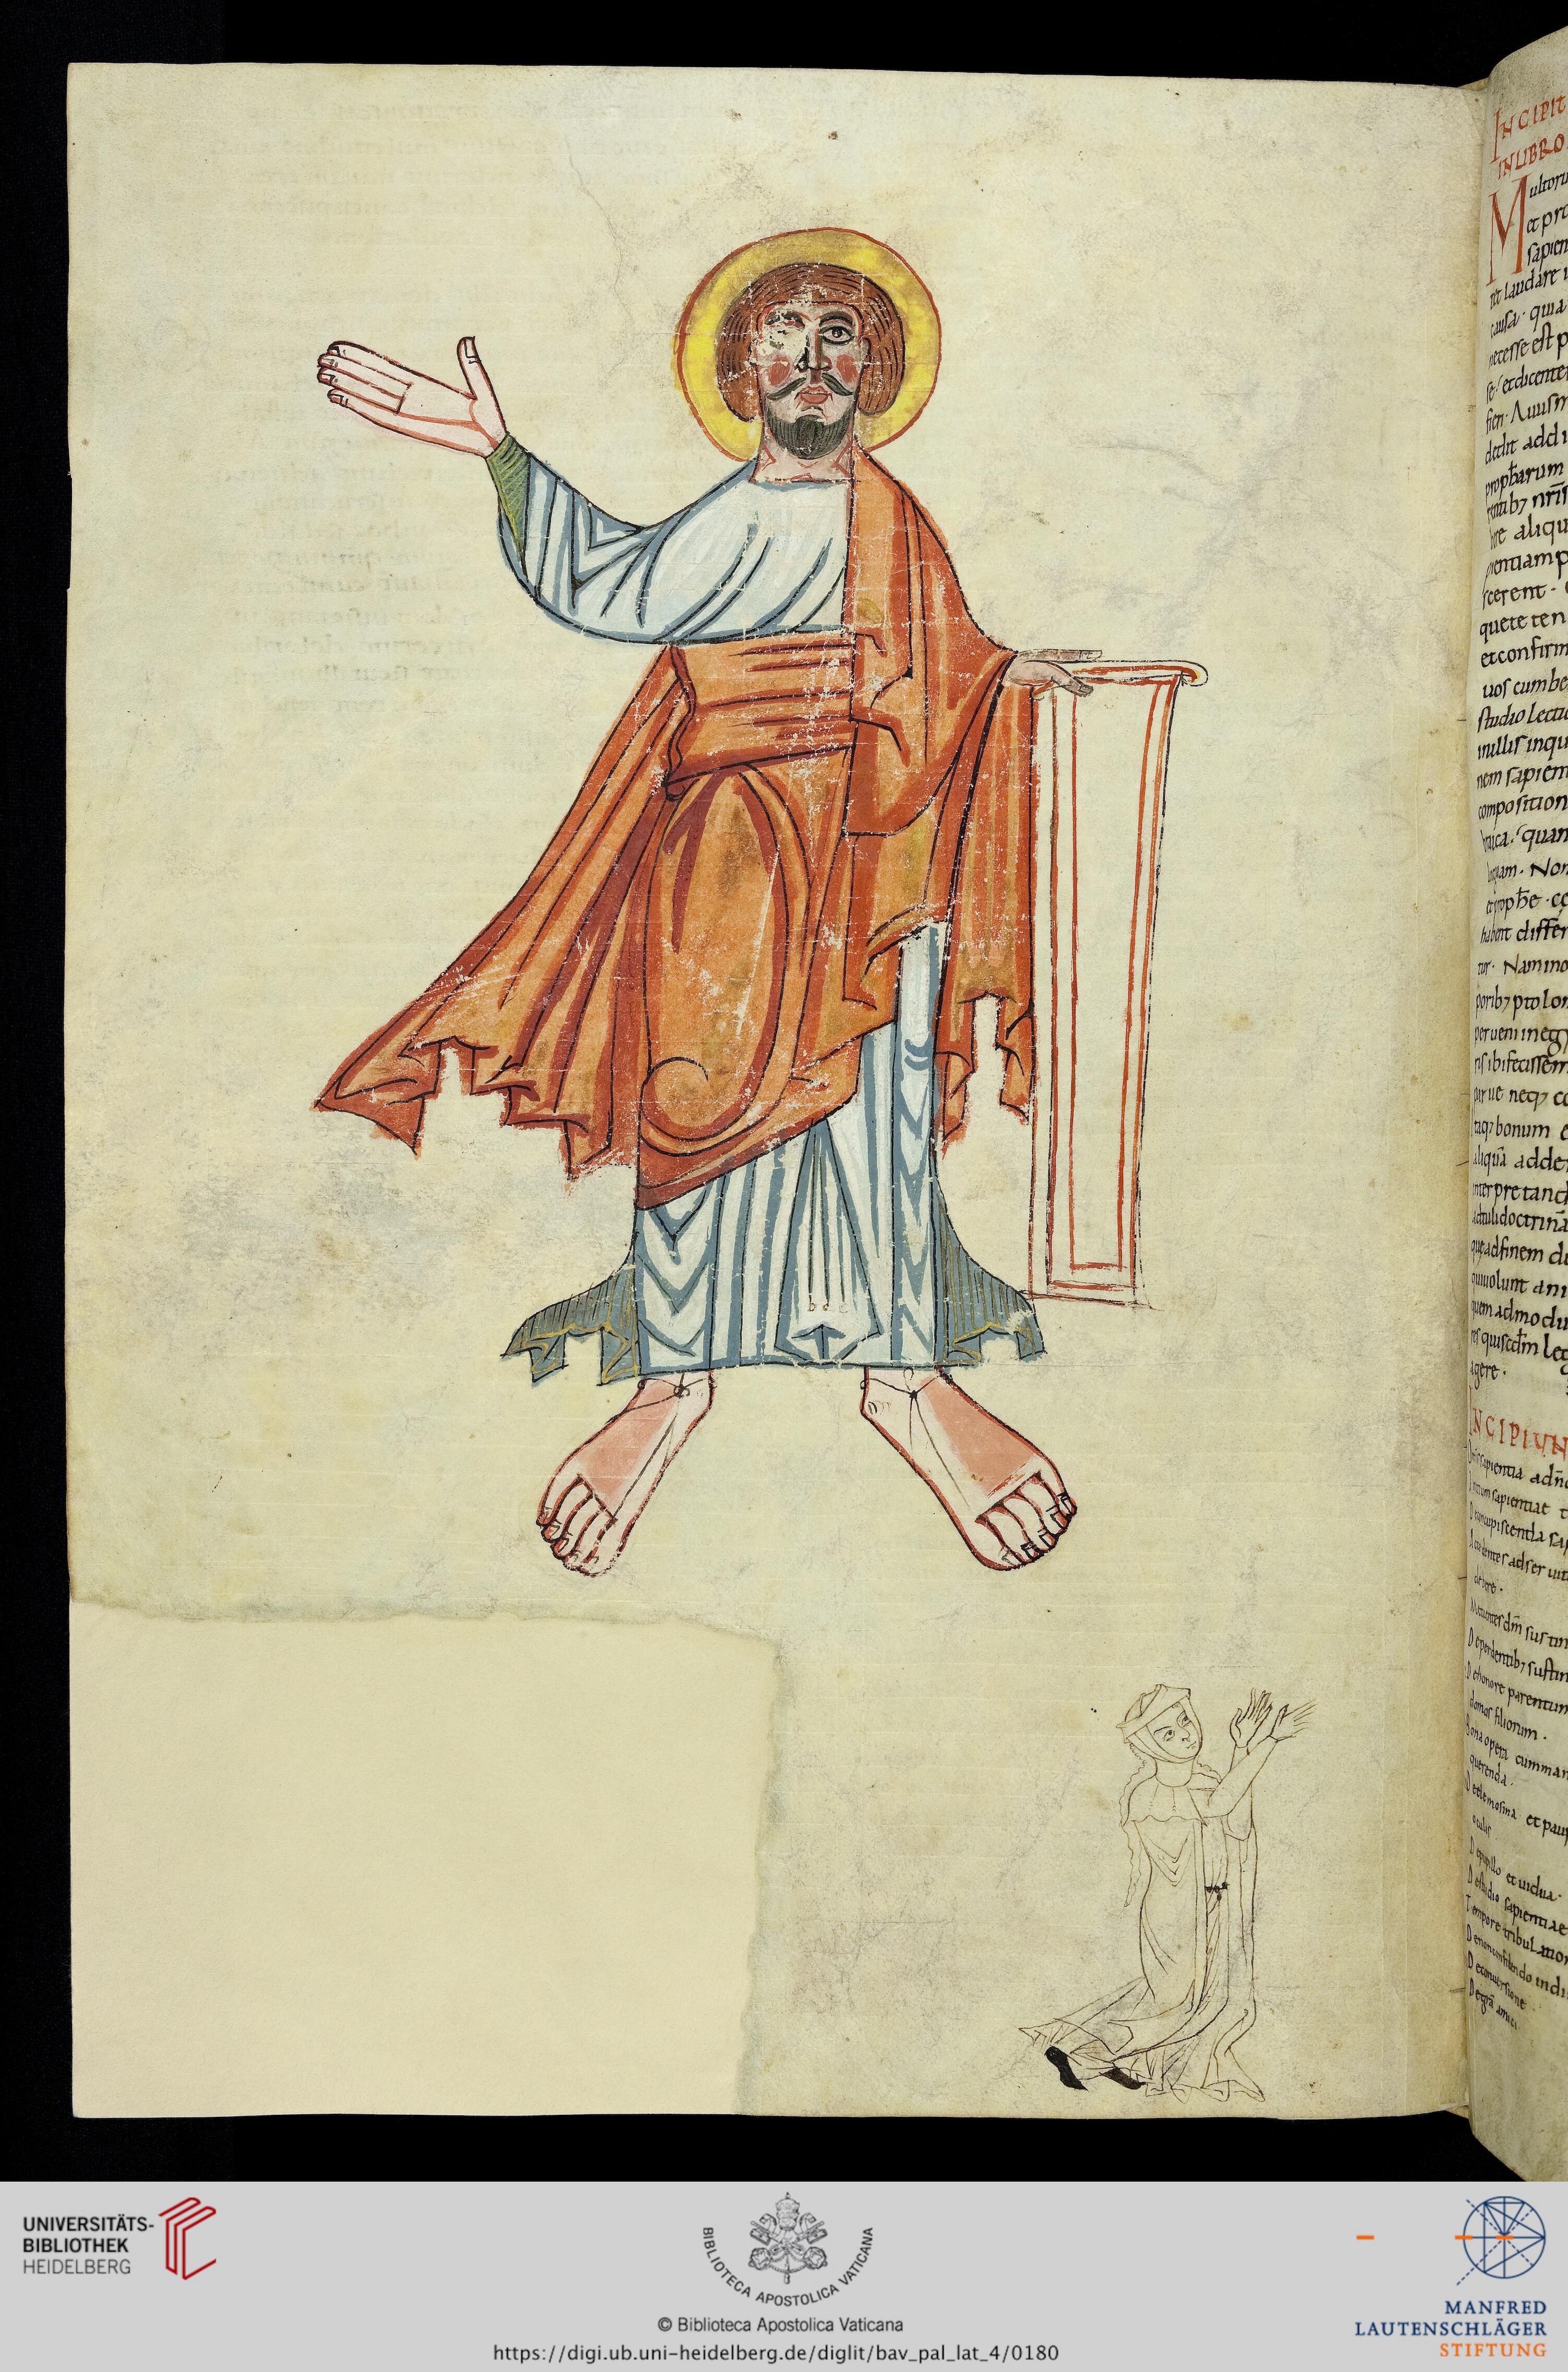 INCIPIT
IN LIBRO
Multoru
et pro
sapien
laudare
causa · quia
necesse est p
se · et dicente
fieri · Auus m
dedit addi
propħarum
aliqu
entiam p
scerent ·
que te ten
et confirm
uos cum be
studio lectio
nullis inqu
nem sapien
composition
quan
Non
et proph̄e
habent differ
tur · Nam in o
porib; ptolom
perueni in eg
ibi fecissem
neq; co
taq; bonum
aliquā adde
interpretand
doctrinā
que ad finem du
qui uolunt ani
quem ad modū
res qui sc̄dm leg
agere ·
INCIPIUN
Omnis sapientia a dn̄o
Initium sapientiae t
De concupiscentia sap
Accedentes ad seruit
debere ·
Metuentes dm̄ sustin
De perdentib; sustin
De honore parentum
domos filiorum ·
Bona opera cum man
querenda ·
De elemosina et paup
oculis
De pupillo et uidua ·
De studio sapientiae
Tempore tribulation
De non confidendo in di
De conuersione
De gr̄a amici
UNIVERSITÄTS-
BIBLIOTHEK
HEIDELBERG
BIBLIOTECA APOSTOLICA VATICANA
© Biblioteca Apostolica Vaticana
https://digi.ub.uni-heidelberg.de/diglit/bav_pal_lat_4/0180
MANFRED
LAUTENSCHLÄGER
STIFTUNG